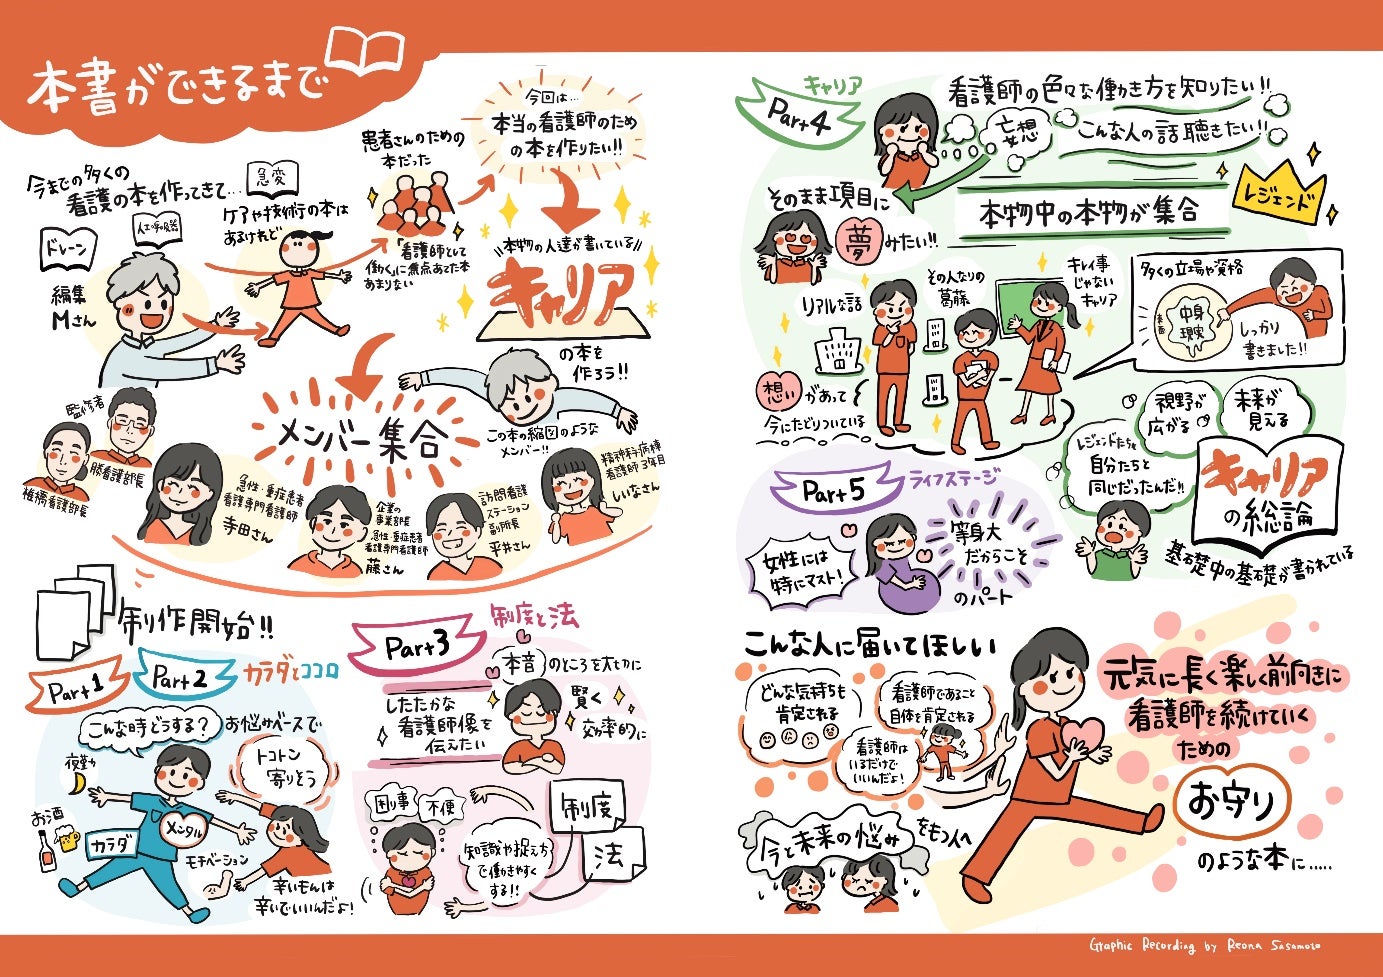 本書ができるまで
今までの多くの
看護の本を作ってきて…
ドレーン
人工呼吸器
急変
編集
Mさん
ケアや技術の本は
あるけれど
患者さんのための
本だった
「看護師として
働く」に焦点あてた本
あまりない
今回は…
本当の看護師のため
の本を作りたい!!
\\本物の人達が書いている//
キャリア
の本を
作ろう!!
メンバー集合
この本の縮図のような
メンバー!!
監修者
勝看護部長
椎橋看護部長
急性・重症患者
看護専門看護師
寺田さん
企業の
事業部長
急性・重症患者
看護専門看護師
藤さん
訪問看護
ステーション
副所長
平井さん
精神科病棟
看護師3年目
しいなさん
制作開始!!
Part1
Part2
カラダとココロ
こんな時どうする?
お悩みベースで
トコトン
寄りそう
夜勤
お酒
カラダ
メンタル
モチベーション
辛いもんは
辛いでいいんだよ!
Part3
制度と法
本音のところを大切に
したたかな
看護師像を
伝えたい
賢く
効率的に
困り事
不便
制度
法
知識や捉え方
で働きやすく
する!!
Part4
キャリア
看護師の色々な働き方を知りたい!!
妄想
こんな人の話聴きたい!!
そのまま項目に
夢みたい!!
本物中の本物が集合
レジェンド
リアルな話
その人なりの
葛藤
キレイ事
じゃない
キャリア
多くの立場や資格
表面
中身
現実
しっかり
書きました!!
想いがあって
今にたどりついている
視野が
広がる
未来が
見える
レジェンドたちも
自分たちと
同じだったんだ!!
キャリア
の総論
基礎中の基礎が書かれている
Part5
ライフステージ
女性には
特にマスト!
等身大
だからこそ
のパート
こんな人に届いてほしい
どんな気持ちも
肯定される
看護師であること
自体を肯定される
看護師は
いるだけで
いいんだよ!
今と未来の悩みをもつ人へ
元気に長く楽しく前向きに
看護師を続けていく
ための
お守り
のような本に……
Graphic Recording by Reona Sasamoto